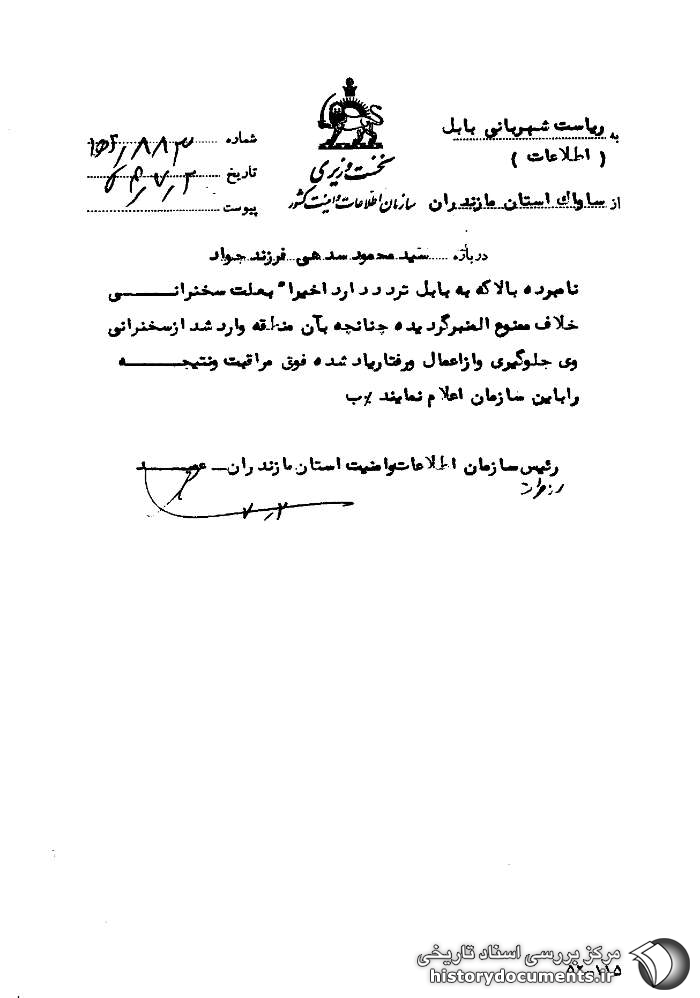 به ریاست شهربانی بابل
( اطلاعات )
از ساواک استان مازندران
نخست وزیری
سازمان اطلاعات و امنیت کشور
شماره ۸۸۳
تاریخ
پیوست
درباره سید محمود سدهی فرزند جواد
نامبرده بالا که به بابل تردد دارد اخیرا" بعلت سخنرانی
خلاف ممنوع المنبر گردیده چنانچه بآن منطقه وارد شد از سخنرانی
وی جلوگیری و از اعمال و رفتار یاد شده فوق مراقبت و نتیجه
را باین سازمان اعلام نمایند /ب
رئیس سازمان اطلاعات و امنیت استان مازندران – عمید
۷/۲
مرکز بررسی اسناد تاریخی
historydocuments.ir